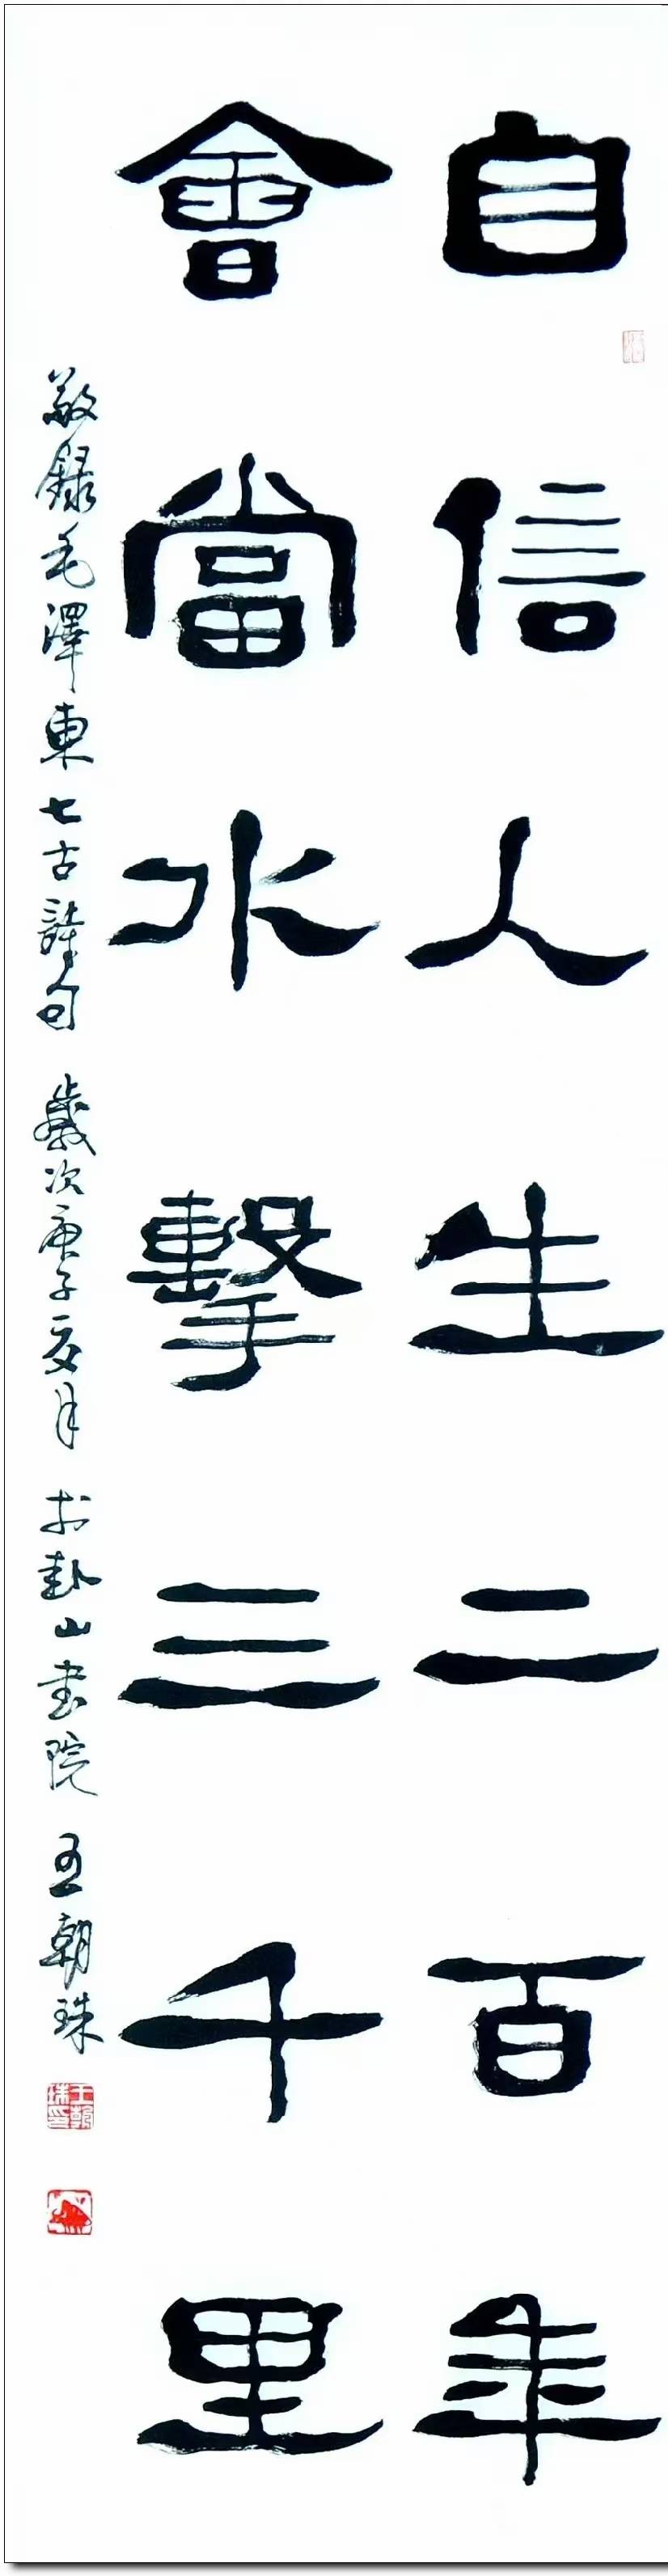 自信人生二百年
會當水擊三千里
敬録毛澤東七古詩句 歲次庚子亥月 於卦山書院 王朝珠
王朝珠印